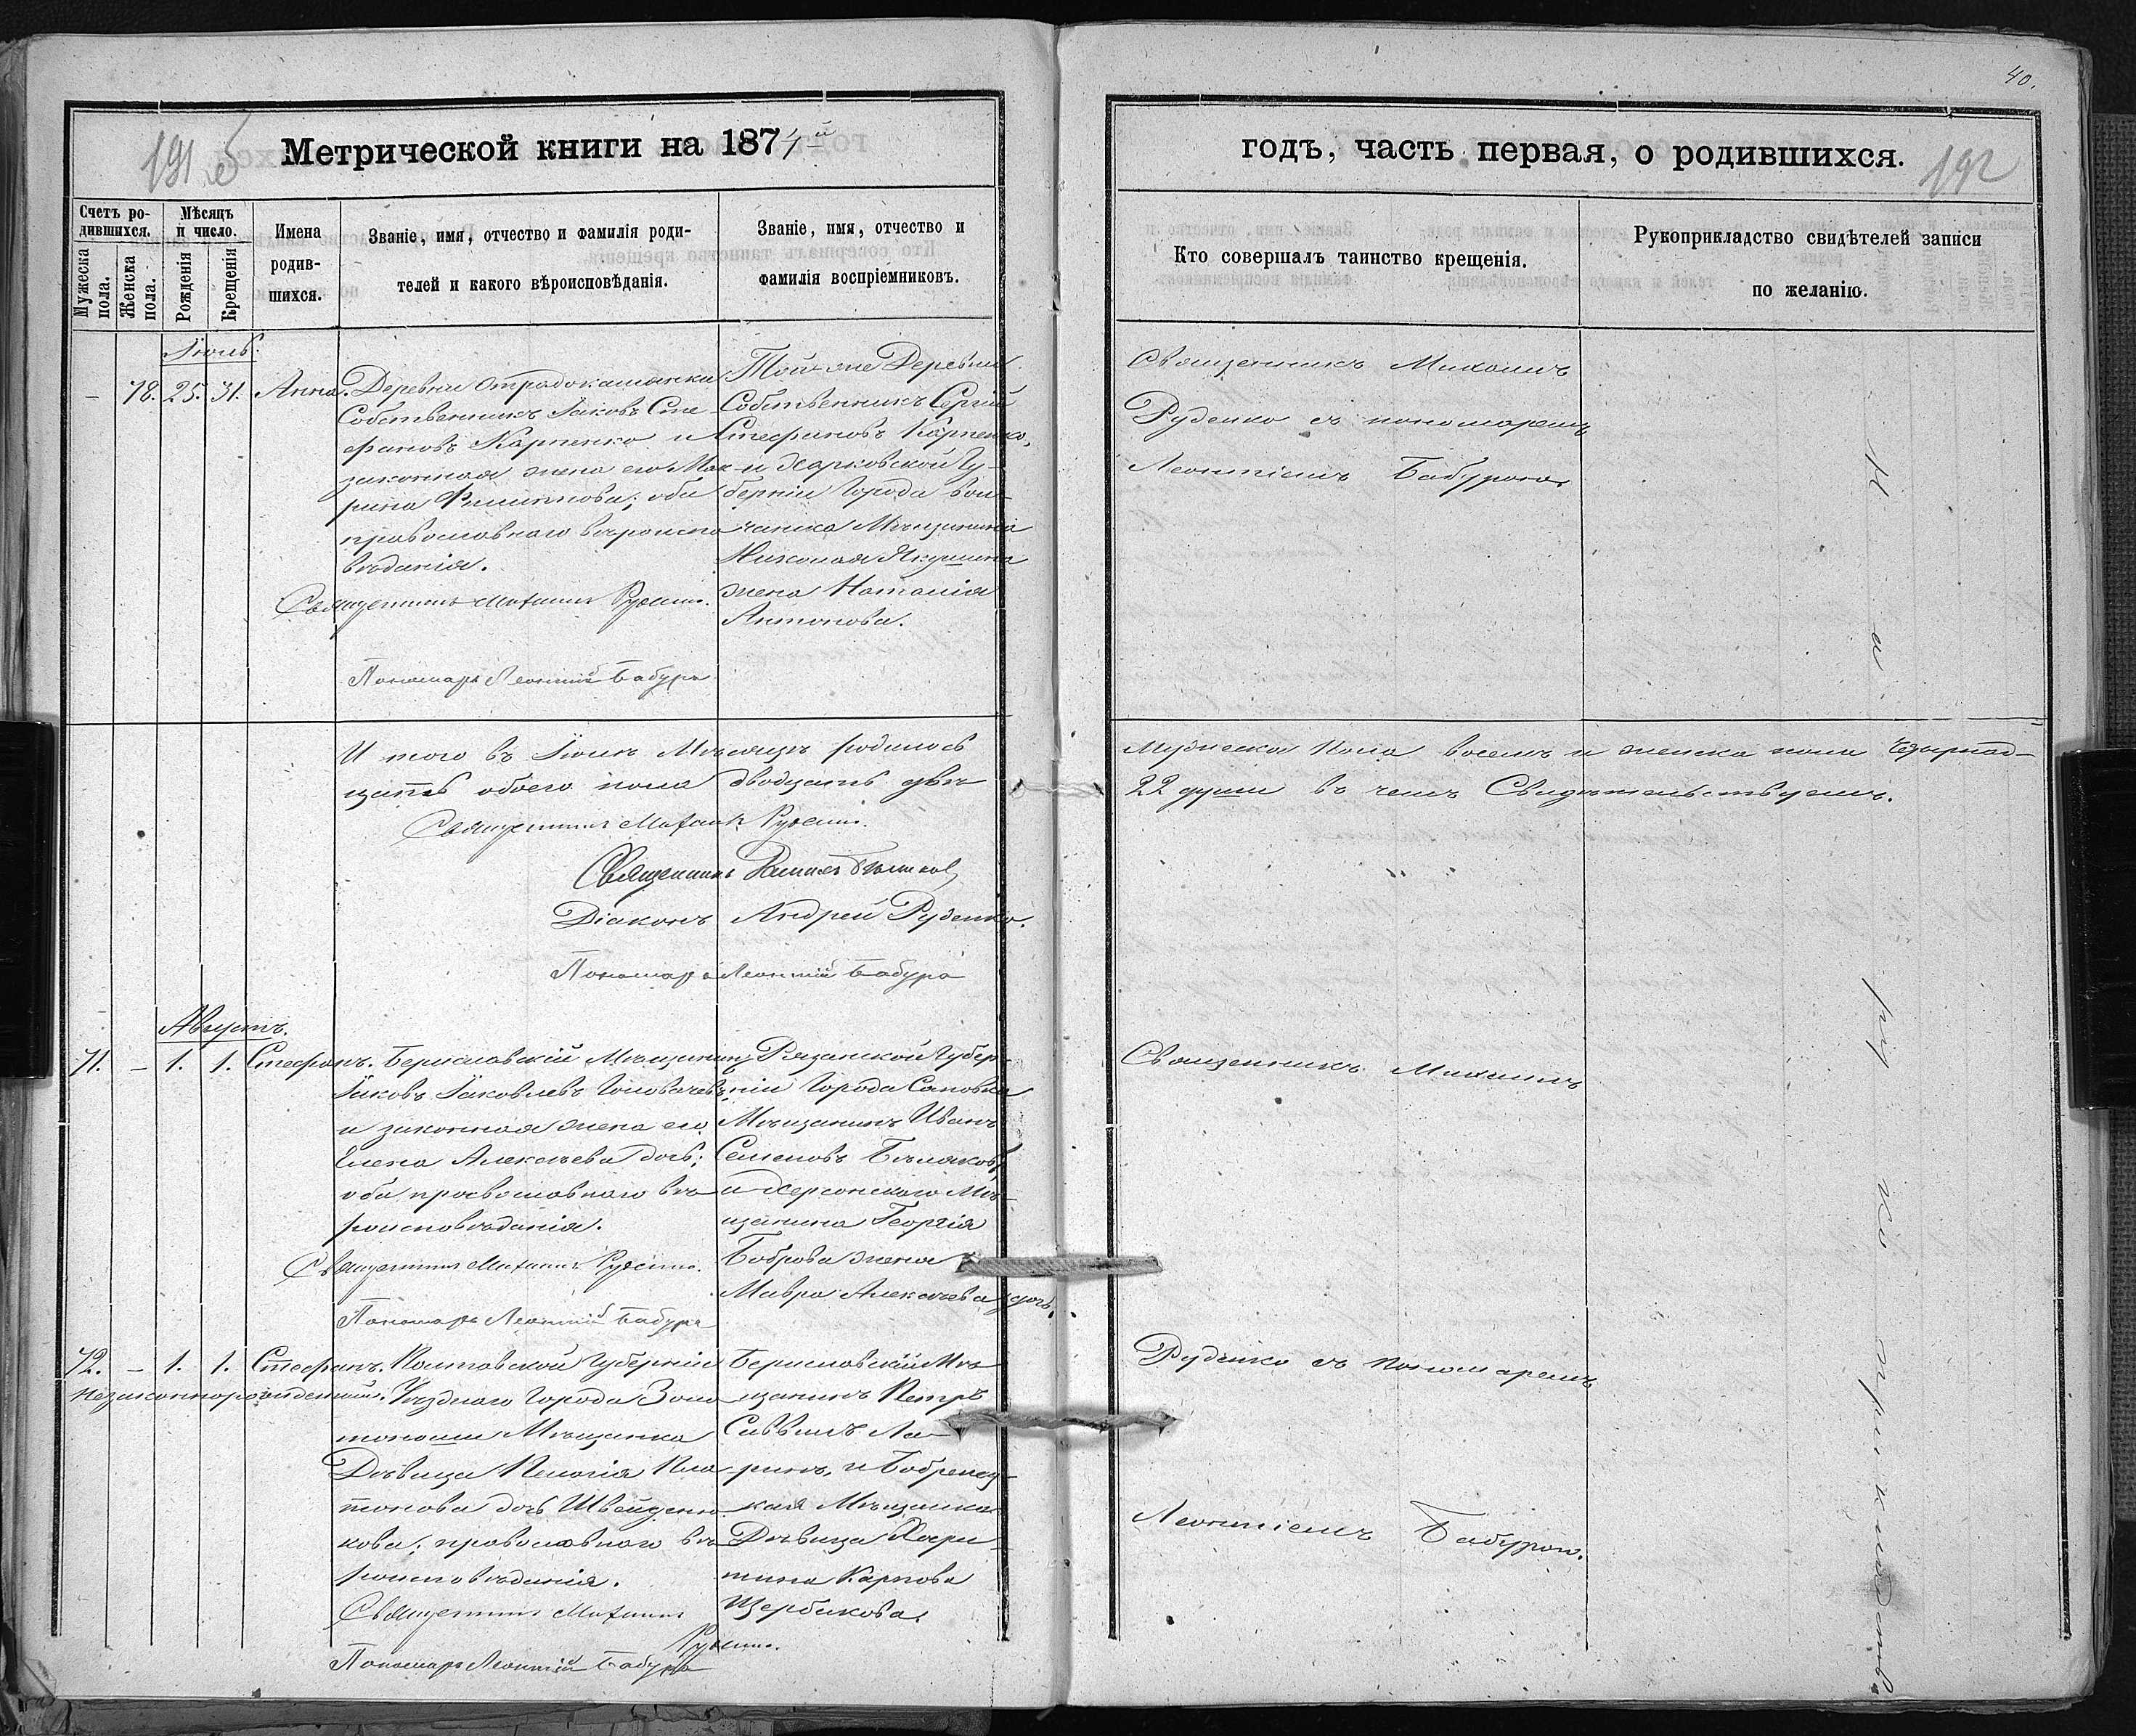 40.
191 об
Метрической книги на 1874й
годъ, часть первая, о родившихся.
192
Счетъ ро-
дившихся.
Мѣсяцъ
и число.
Мужеска
пола.
Женска
пола.
Рожденія
Крещенія
Имена
родив-
шихся.
Званіе, имя, отчество и фамилія роди-
телей и какого вѣроисповѣданія.
Званіе, имя, отчество и
фамилія воспріемниковъ.
Кто совершалъ таинство крещенія.
Рукоприкладство свидѣтелей записи
по желанію.
Іюль.
– 78. 25. 31. Анна.
Деревни Отрадокаменки
Собственникъ Іаковъ Сте-
фановъ Карпенко и
законная жена его Мак-
рина Филиппова; оба
православнаго вѣроиспо
вѣданія.
Священникъ Михаилъ Руденко.
Пономарь Леонтій Бабура
Той-же Деревни
Собственникъ Сергій
Стефановъ Карпенко,
и Харковской Гу-
берніи Города Вол-
чанска Мѣщанина
Николая Якушина
жена Наталія
Антонова.
Священникъ Михаилъ
Руденко съ пономаремъ
Леонтіемъ Бабурою.
И того въ Іюлѣ Мѣсяцѣ родилось
Мужеска Пола восемъ и женска пола Четырнад-
цать обоего пола двадцать двѣ
22 души въ чемъ Свидѣтельствуемъ.
Священникъ Михаилъ Руденко.
Священникъ
Діаконъ Андрей Руденко.
Пономарь Леонтій Бабура
Августъ.
71. – 1. 1. Стефанъ.
Бериславскій Мѣщанинъ
Іаковъ Іаковлевъ Головачевъ,
и законная жена его
Елена Алексѣева дочь;
оба православнаго вѣ
роисповѣданія.
Священникъ Михаилъ Руденко.
Пономарь Леонтій Бабура
Рязанской Губер
ніи Города
Мѣщанинъ Иванъ
Семеновъ Бѣляковъ,
и Херсонскаго Мѣ-
щанина Георгія
Боброва жена
Мавра Алексѣева дочь.
Священникъ Михаилъ
72. – 1. 1. Стефанъ.
незаконнорожденный.
Полтавской Губерніи
Уѣзднаго Города Золо
тоноши Мѣщанка
Дѣвица Пелагія Пла
тонова дочь
православнаго вѣ
роисповѣданія.
Священникъ Михаилъ
Руденко.
Пономарь Леонтій Бабура
Бериславскій Мѣ
щанинъ Петръ
Саввинъ Ла-
ринъ, и
кая Мѣщанка
Дѣвица Хари
тина Карпова
Щербакова.
Руденко съ Пономаремъ
Леонтіемъ Бабурою.
На рукоприкладство